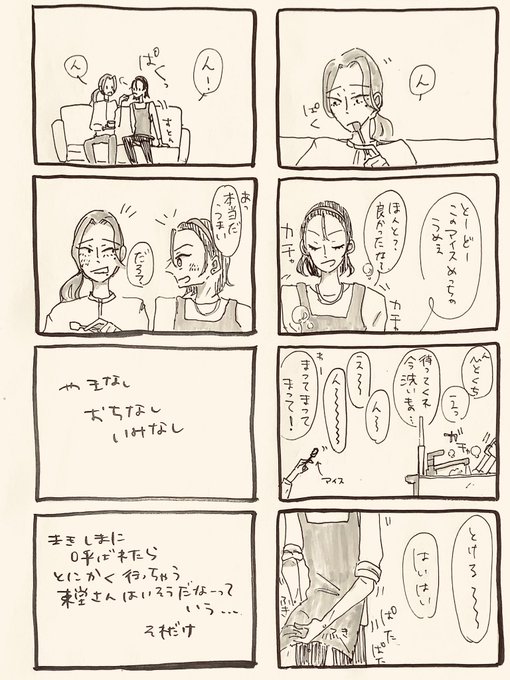 ん
ぱく
とーどー
このアイスめっちゃ
うめえ
ほんと?
良かったな?
カチャ
カチャ
ひとくち
えっ
待ってくれ
今洗いもの…
ガチャ
え〜〜
ん〜
ん〜〜〜〜
まってまって
まって!
アイス
とける〜〜
はいはい
ぱた
ぱた
ふき
ふき
んー!
ぱくっ
ん
すとん
あっ
本当だ
うまい
だろ?
やまなし
おちなし
いみなし
まきしまに
呼ばれたら
とにかく行っちゃう
東堂さんはいそうだなーって
いう…
それだけ